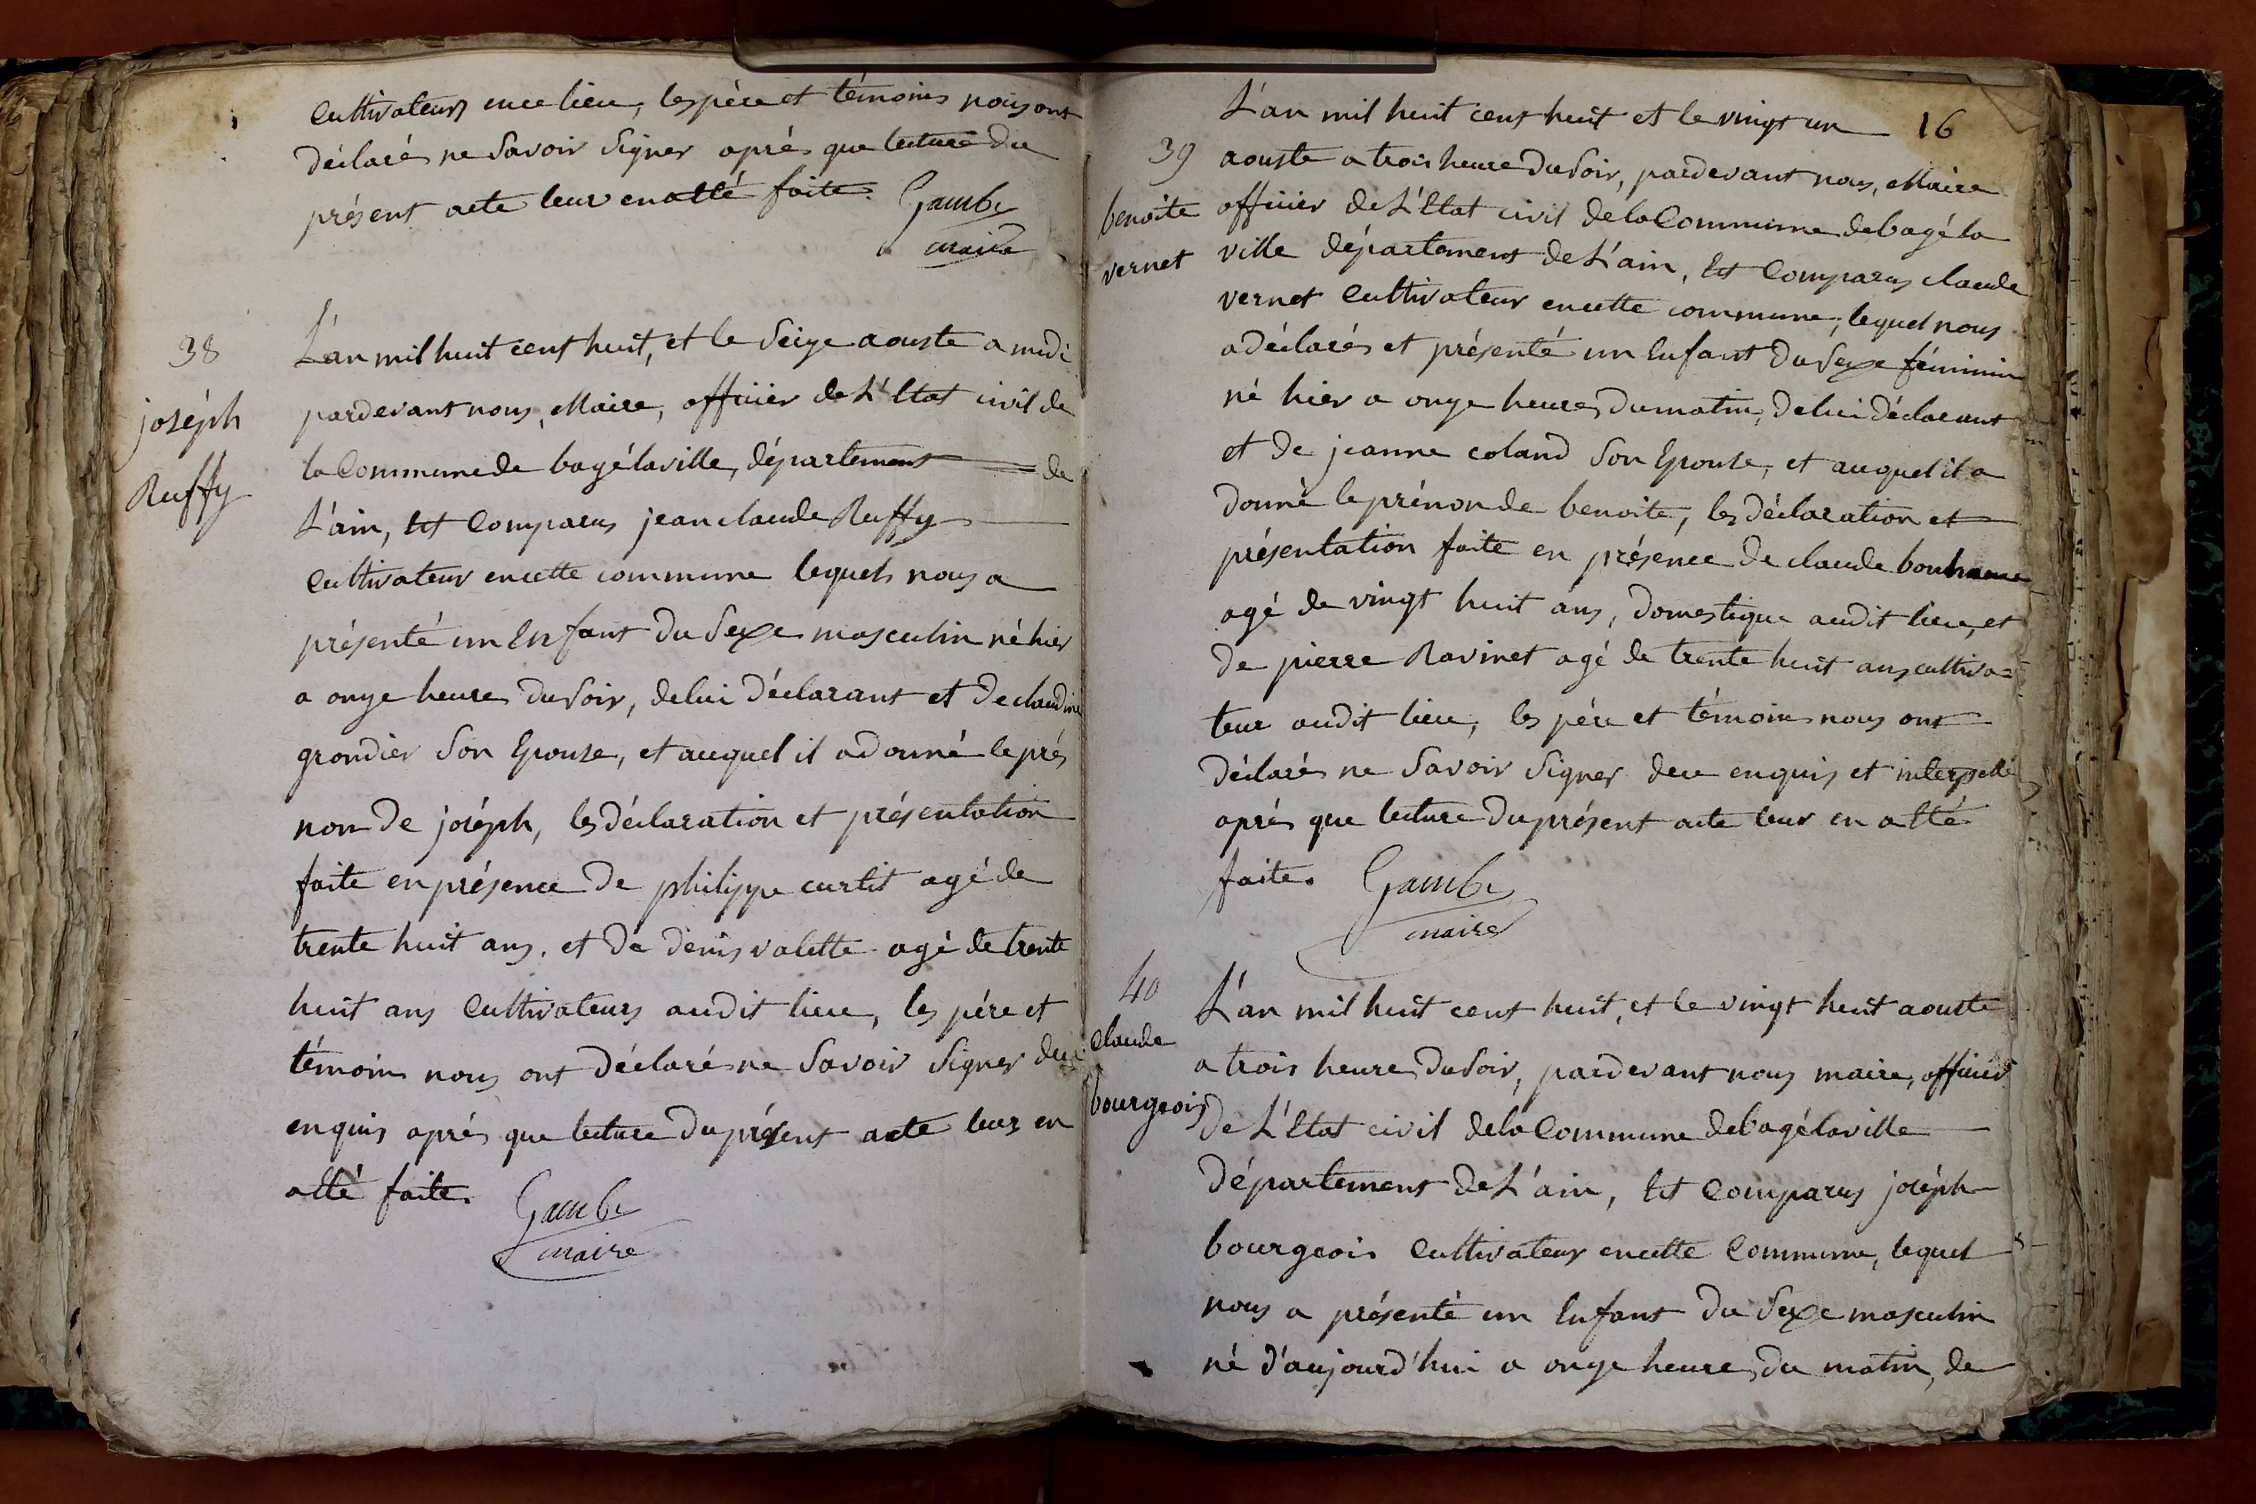 cultivateurs ence lieu, les père et témoins nous ont
déclarés ne Savoir Signer aprés que lecture du
présent acte leur enatté faite. Gambe
maire
38
L'an mil huit cent huit, et le Seize aouste a midi
joséph
pardevant nous, Maire, officier de L'Etat civil de
Ruffy
la Commune de bagélaville, département de
L'ain, Est Comparus jean claude Ruffy
Cultivateur encette commune lequels nous a
présenté un Enfant du Sexe masculin né hier
a onze heures du Soir, delui déclarant et de claudine
grondier Son Epouse, et auquel il adonné le pré
nom de joséph, les déclaration et présentation
faite en présence de philippe curtit agé de
trente huit ans, et de denis valette agé de trente
huit ans Cultivateurs audit lieu, les pére et
témoins nous ont déclaré ne Savoir Signer de ce
enquis aprés que lecture du présent acte leur en
atté faite.
Gambe
maire
16
L'an mil huit cent huit et le vingt un
39
aouste a trois heure du Soir, pardevant nous, Maire
benoite
officier de L'Etat civil de la Commune de bagé la
vernet
ville département de L'ain, Est Comparus claude
vernet Cultivateur encette commune, lequel nous
a déclarés et présenté un Enfant du Sexe féminin
né hier a onze heures du matin, de lui déclarant
et de jeanne coland Son Epouse, et auquel il a
donné le prénon de benoite, les déclaration et
présentation faite en présence de claude bonhomme
agé de vingt huit ans, domestique audit lieu, et
de pierre Ravinet agé de trente huit ans cultiva=
teur audit lieu, les pére et témoins nous ont
déclarés ne Savoir Signer de ce enquis et interpellé
aprés que lecture du présent acte leur en atté
faite. Gambe
maire
40
L'an mil huit cent huit, et le vingt huit aouste
claude
a trois heure du Soir, pardevant nous maire, officier
bourgeois
de L'Etat civil de la Commune de bagélaville
Département de L'ain, Est Comparus joséph
bourgeois Cultivateur encette Commune, lequel
nous a présenté un Enfant du Sexe masculin
né d'aujourd'hui a onze heures du matin, de